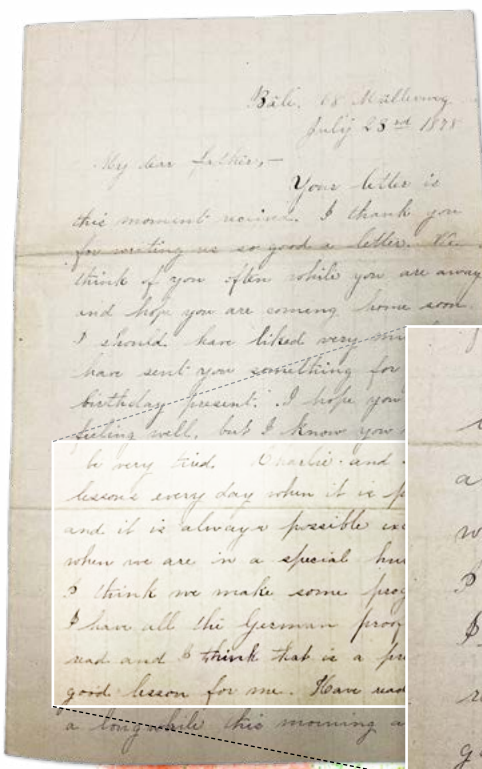 Bâle. 68 Müllerweg.
July 23rd 1878
My dear Father,—
Your letter is
this moment recieved. I thank you
for writing us so good a letter. We
think of you often while you are away
and hope you are coming home soon.
I should have liked very
have sent you something for
birthday present. I hope you
feeling well, but I know you
be very tired. Charlie and
lessons every day when it is
and it is always possible
when we are in a special
I think we make some
I have all the German
read and I think that is a
good lesson for me. Have read
a long while this morning